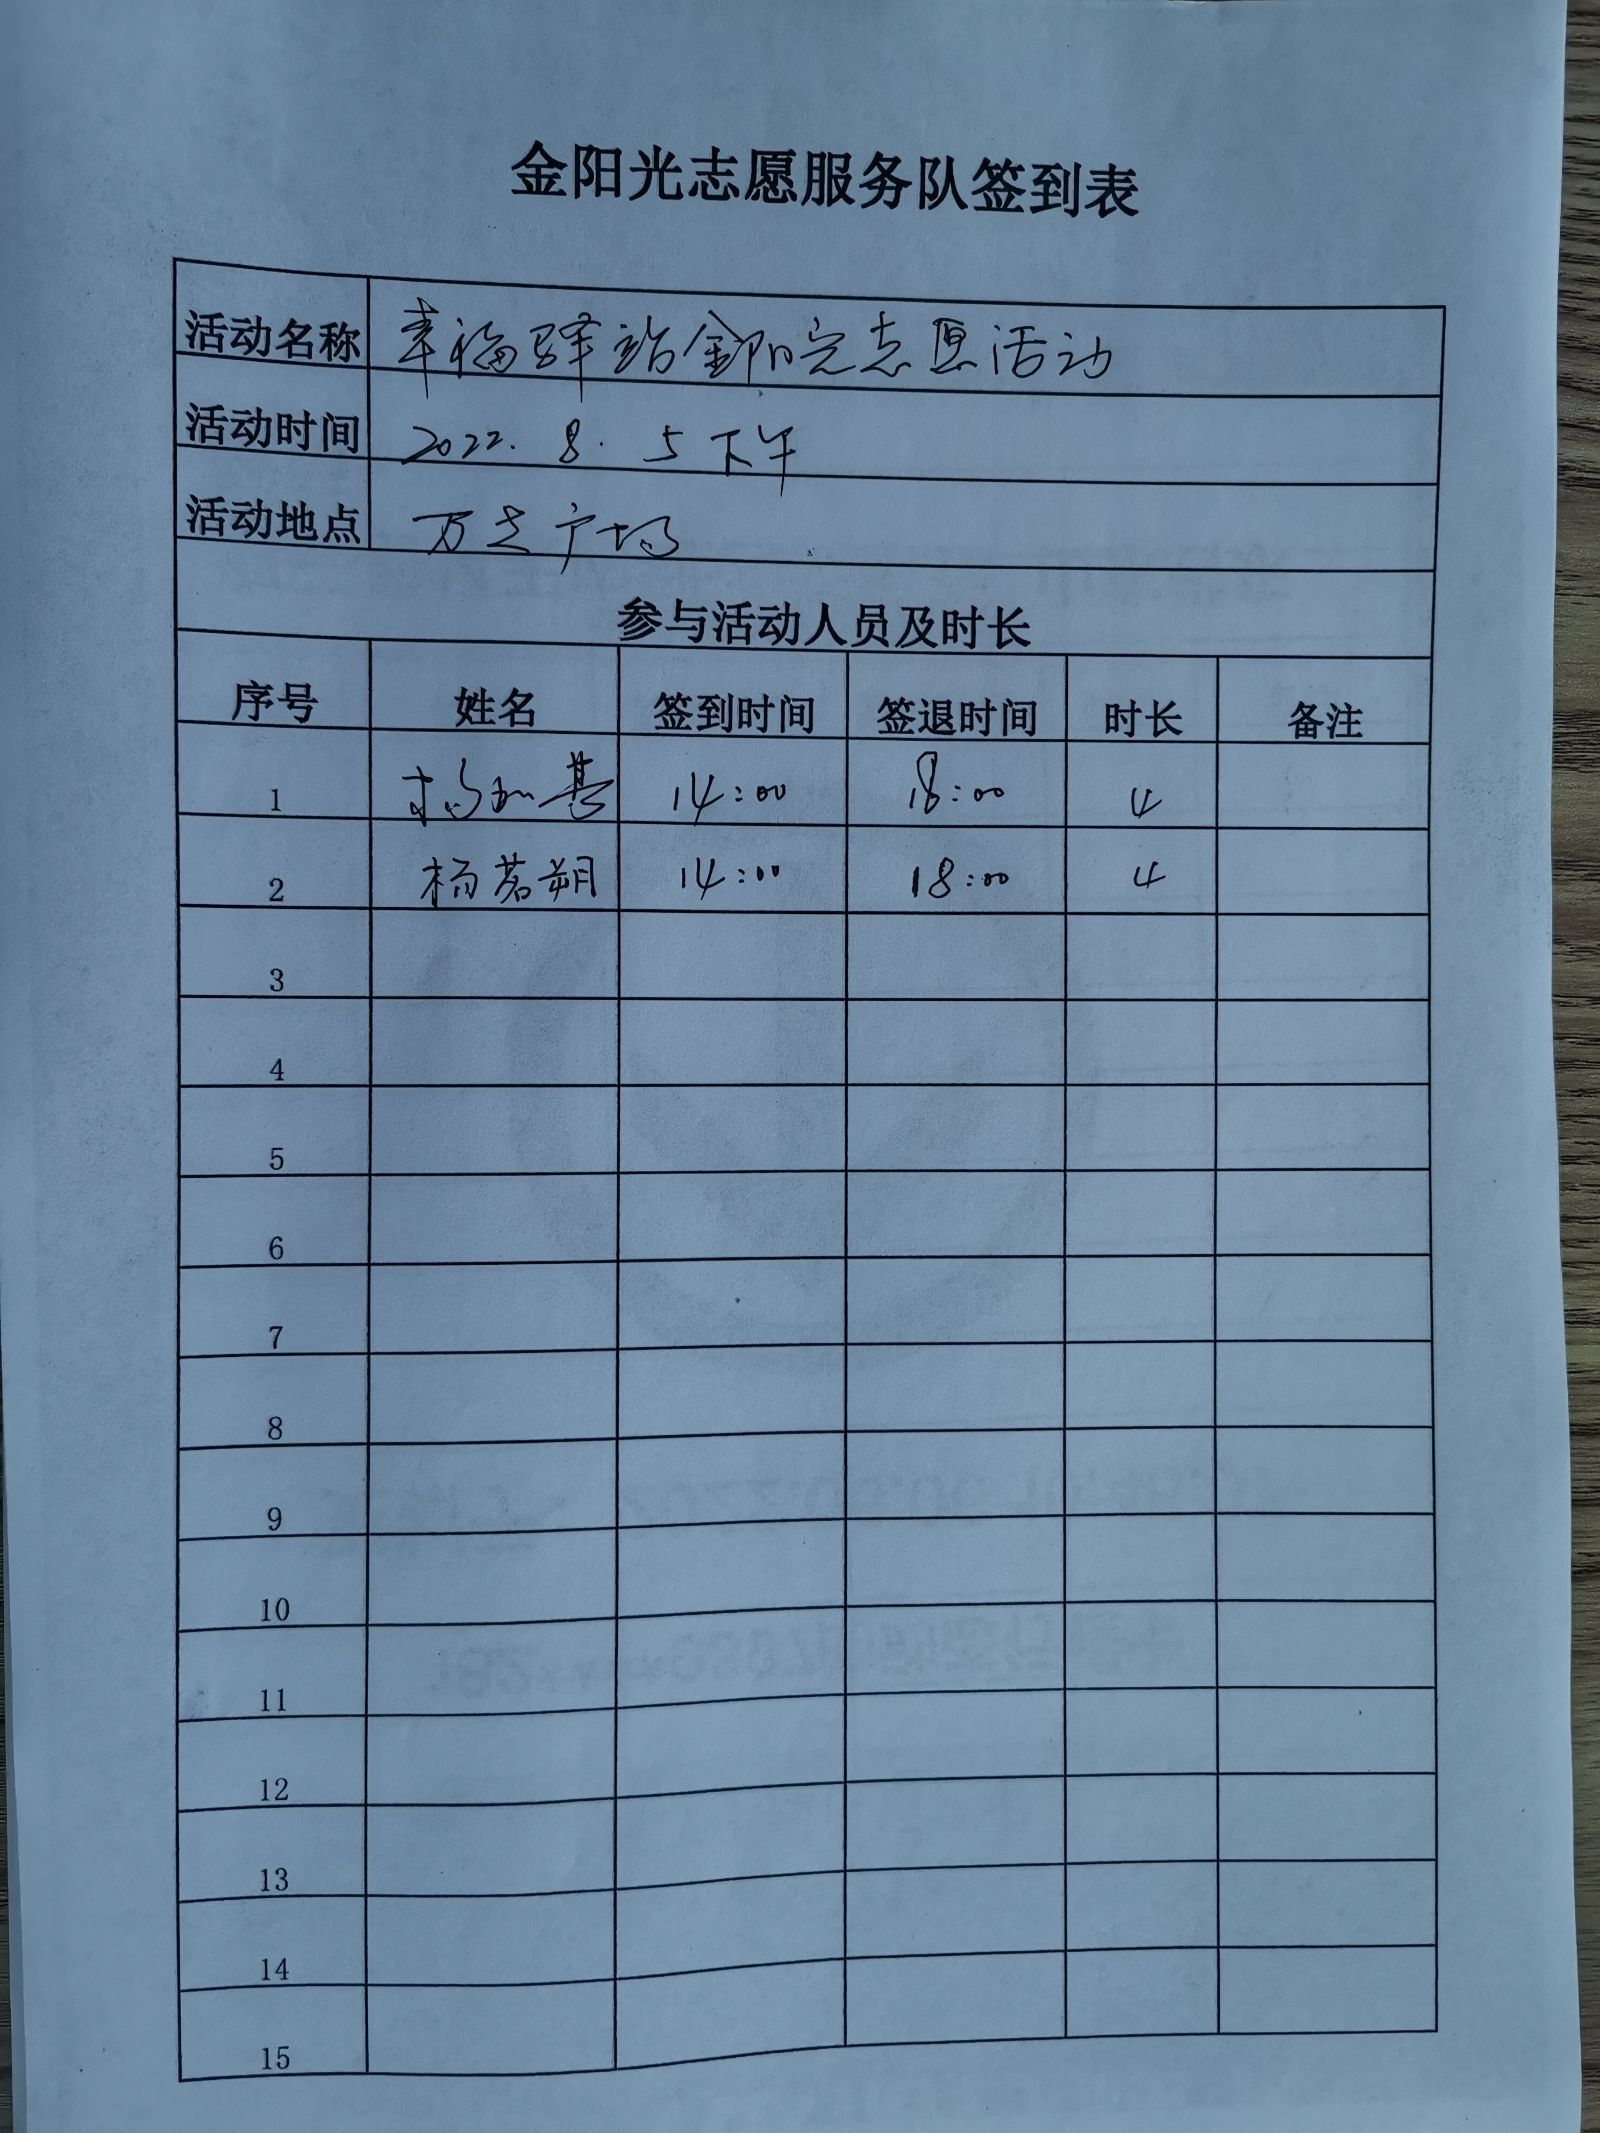 金阳光志愿服务队签到表
活动名称 幸福驿站金阳光志愿活动
活动时间 2022.8.5下午
活动地点 万达广场
参与活动人员及时长
序号 姓名 签到时间 签退时间 时长 备注
1 14:00 18:00 4
2 杨茗朔 14:00 18:00 4
3
4
5
6
7
8
9
10
11
12
13
14
15